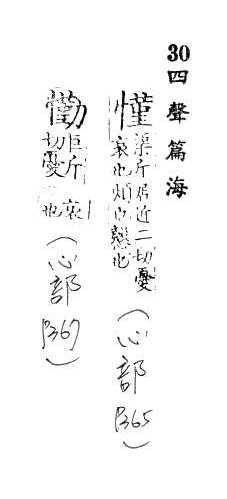 30四聲篇海
慬
渠斤居近二切憂
哀也煩也愨也
（心部
P365）
懄
巨斤
切憂
哀
也
（心部
P367）